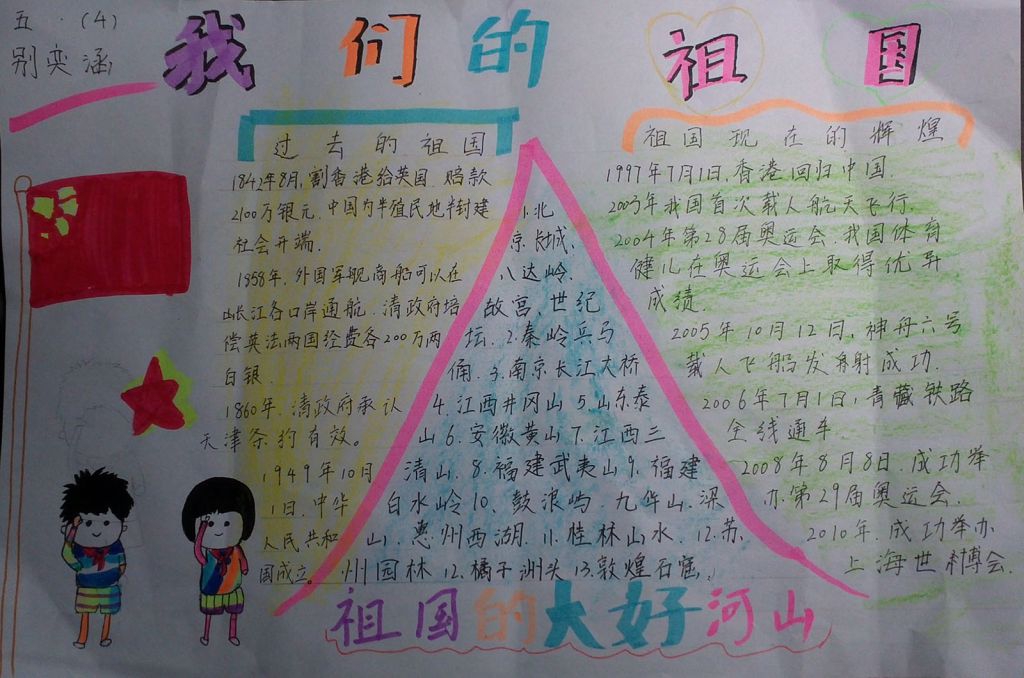 五.(4)
别奕涵
我们的祖国
过去的祖国
1842年8月,割香港给英国.赔款
2100万银元.中国为半殖民地半封建
社会开端.
1958年.外国军舰商船可以在
长江各口岸通航.清政府培
偿英法两国经费各200万两
白银.
1860年.清政府承认
天津条约有效。
1949年10月
1日.中华
人民共和
国成立。
1.北
京长城、
八达岭.
故宫、世纪
坛.2.秦岭兵马
俑.3.南京长江大桥
4.江西井冈山5.山东泰
山6.安徽黄山7.江西三
清山.8.福建武夷山9.福建
白水岭10.鼓浪屿.九华山.深
山.惠州西湖.11.桂林山水.12.苏.
州园林12.橘子洲头13.敦煌石窟.
祖国现在的辉煌
1997年7月1日.香港回归中国.
2003年我国首次载人航天飞行.
2004年第28届奥运会.我国体育
健儿在奥运会上取得优异
成绩.
2005年10月12日,神舟六号
载人飞船发射成功.
2006年7月1日,青藏铁路
全线通车.
2008年8月8日.成功举
办第29届奥运会.
2010年.成功举办
上海世博会.
祖国的大好河山